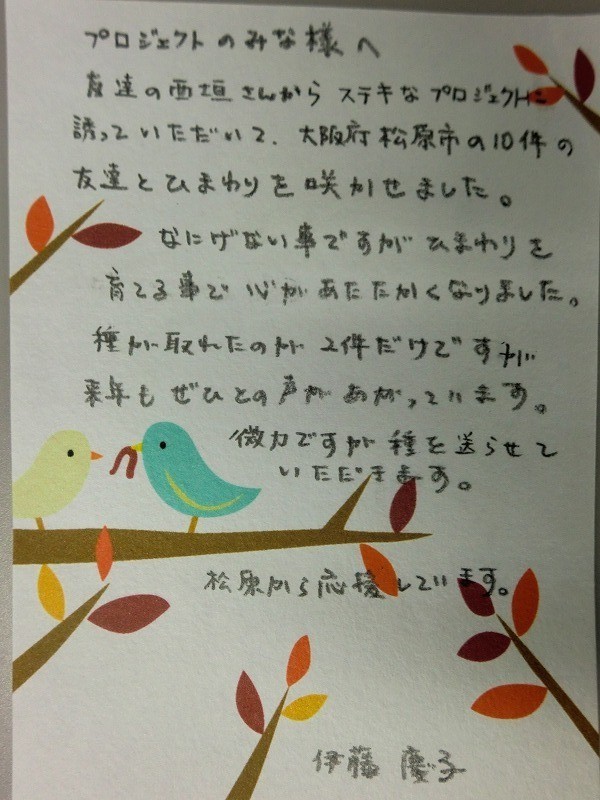 プロジェクトのみな様へ
友達の西垣さんから ステキなプロジェクトに
誘っていただいて、大阪府松原市の10件の
友達とひまわりを咲かせました。
なにげない事ですがひまわりを
育てる事で心があたたかくなりました。
種が取れたのが2件だけですが
来年もぜひとの声があがっています。
微力ですが種を送らせて
いただきます。
松原から応援しています。
伊藤 慶子